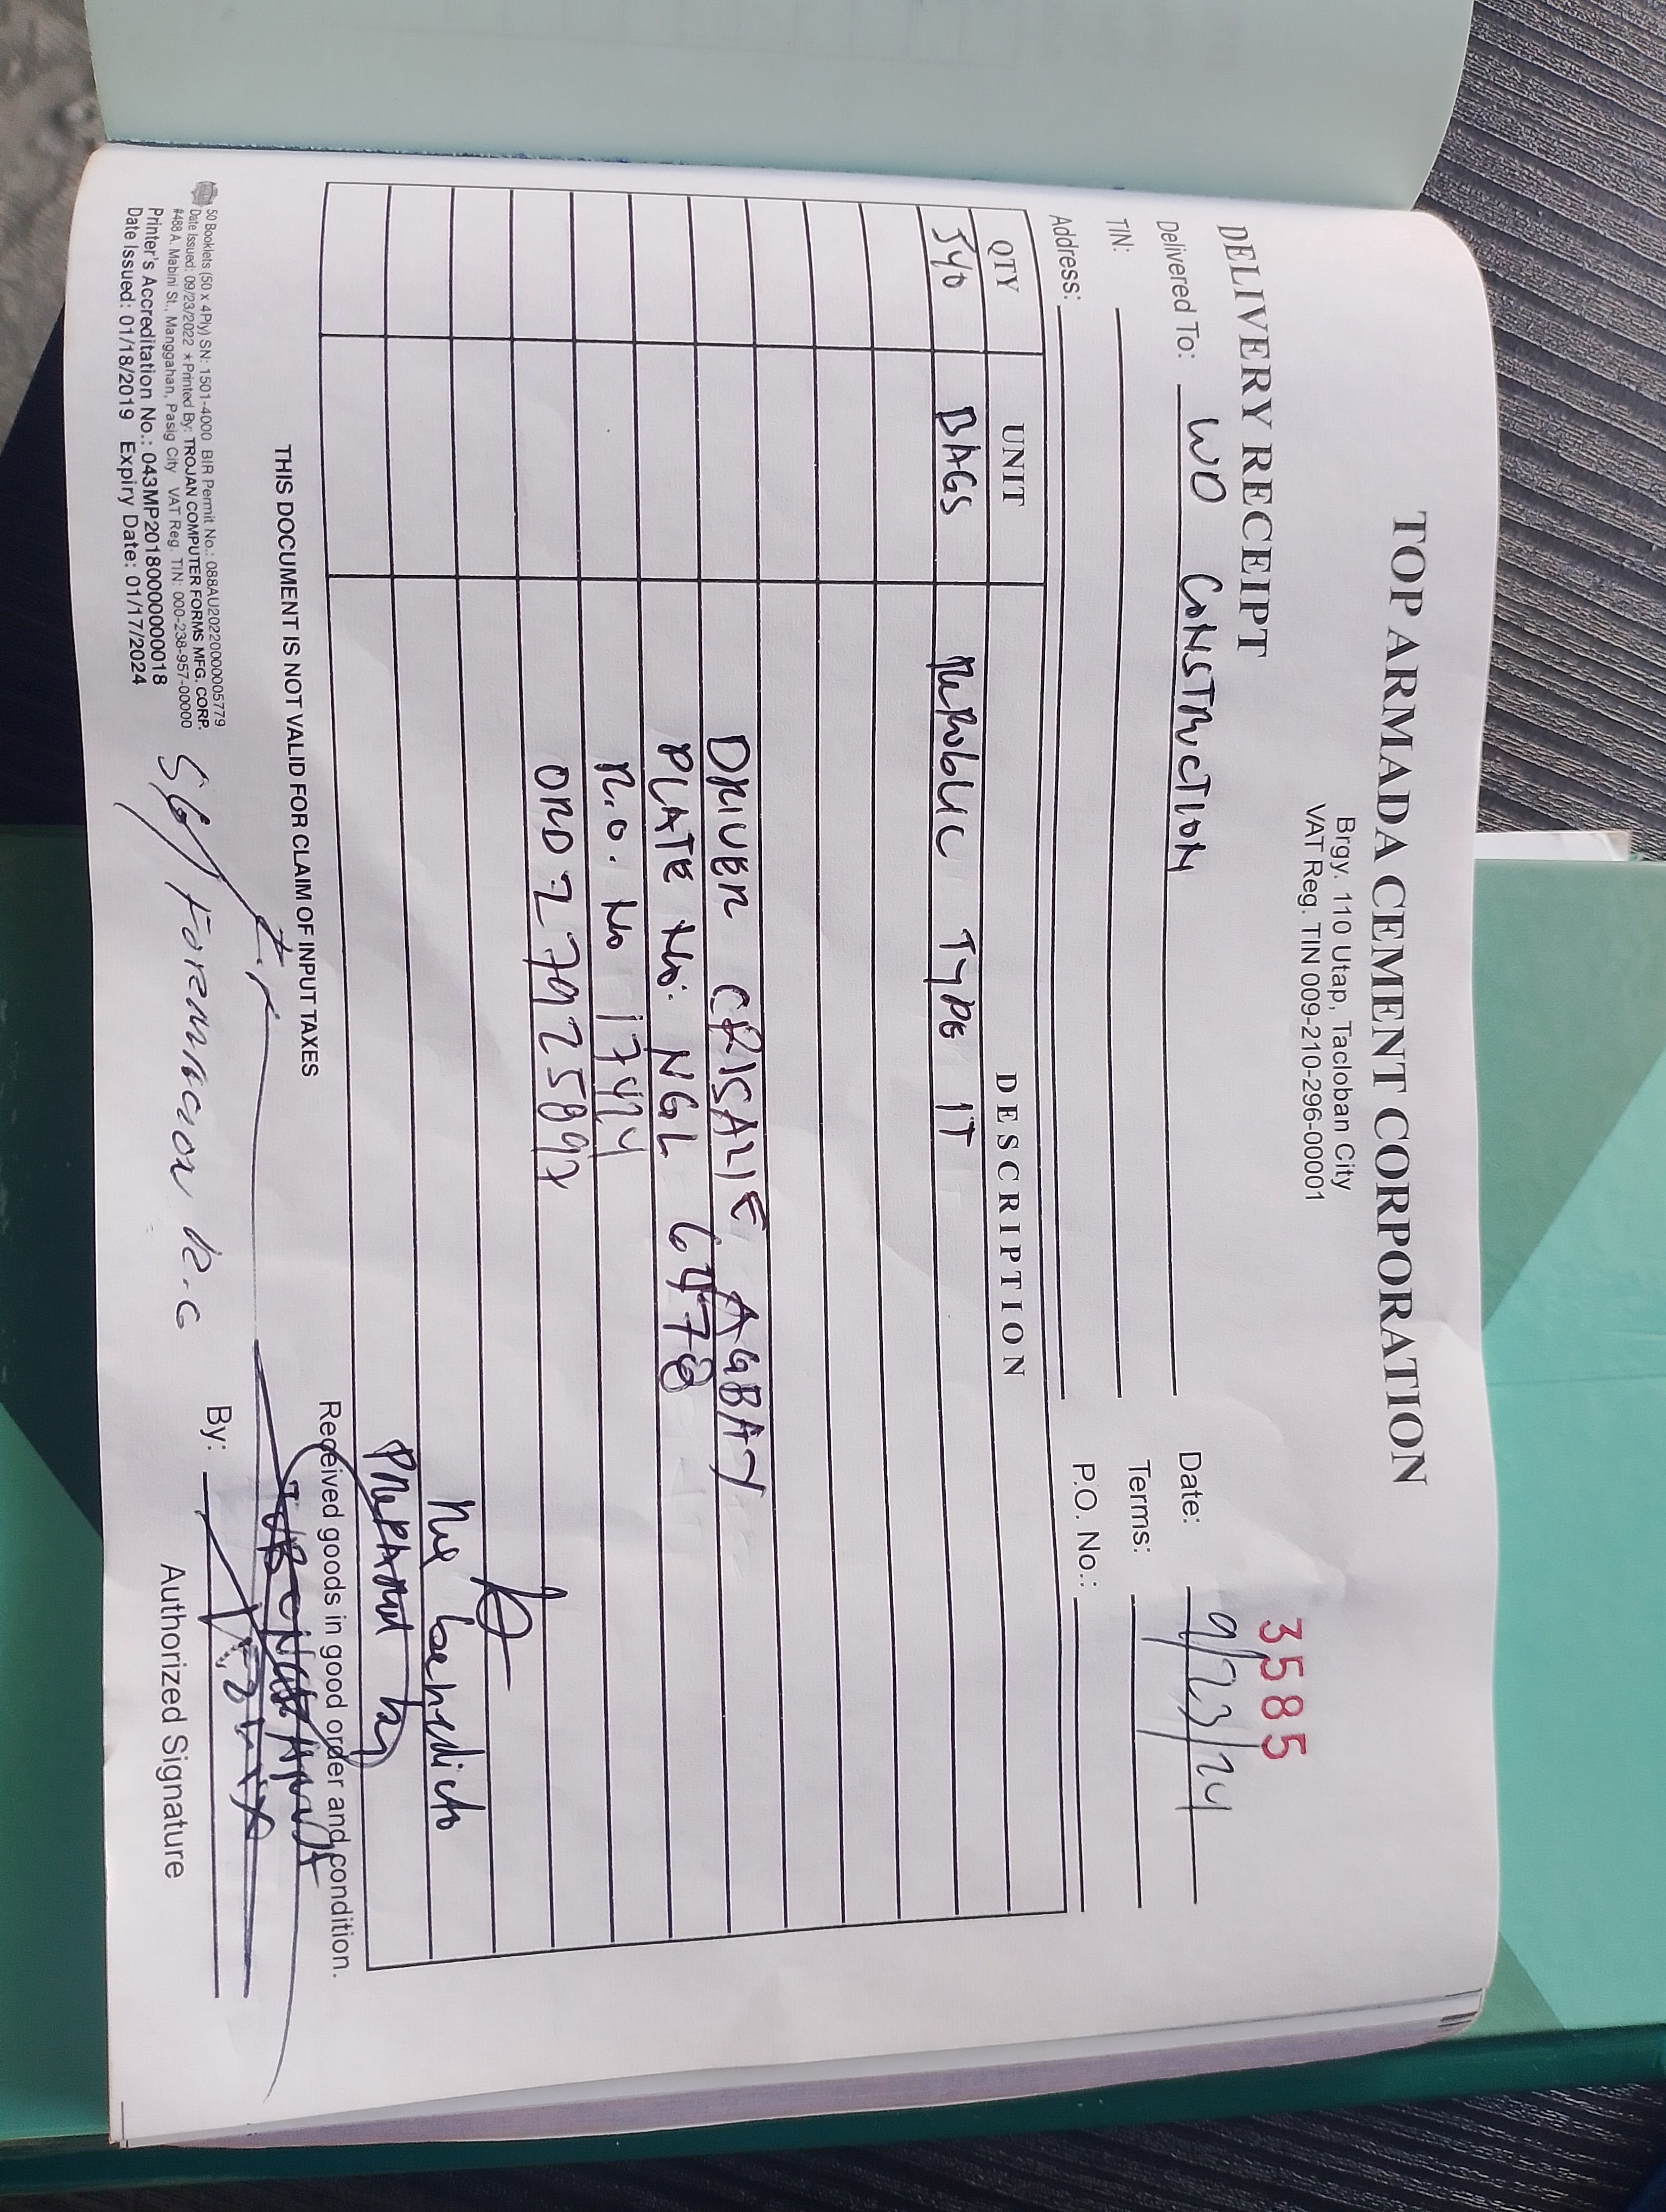 TOP ARMADA CEMENT CORPORATION
Brgy. 110 Utap, Tacloban City
VAT Reg. TIN 009-210-296-00001
DELIVERY RECEIPT
3585
Delivered To: WD CONSTRUCTION
Date: 9/23/24
TIN:
Terms:
Address:
P.O. No.:
QTY UNIT DESCRIPTION
540 BAGS REPUBLIC TYPE 1T
DRIVER CRISALIE AGBAY
PLATE No: NGL 6478
R.O. No 17424
ORD 27925892
PREPARED by
THIS DOCUMENT IS NOT VALID FOR CLAIM OF INPUT TAXES
Received goods in good order and condition.
50 Booklets (50 x 4Ply) SN: 1501-4000 BIR Permit No.: 088AU20220000005779
Date Issued: 09/23/2022 ★ Printed By: TROJAN COMPUTER FORMS MFG. CORP.
#488 A. Mabini St., Manggahan, Pasig City VAT Reg. TIN: 000-238-957-00000
Printer's Accreditation No.: 043MP20180000000018
Date Issued: 01/18/2019 Expiry Date: 01/17/2024
By:
Authorized Signature